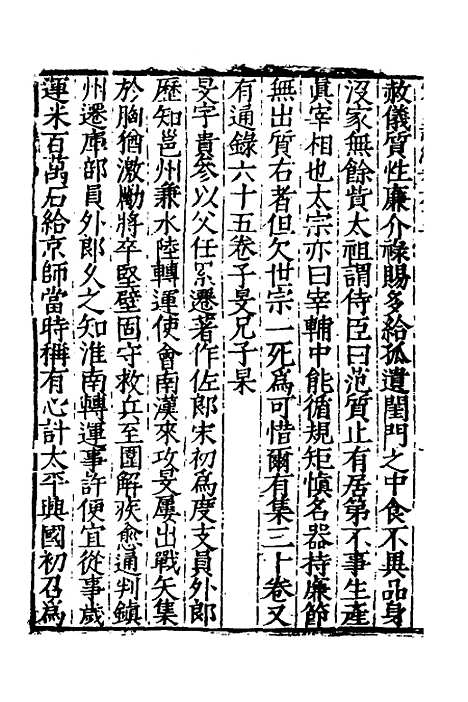 赦儀質性廉介祿賜多給孤遺閨門之中食不異品身
沒家無餘貲太祖謂侍臣曰范質止有居第不事生產
真宰相也太宗亦曰宰輔中能循規矩慎名器持廉節
無出質右者但欠世宗一死爲可惜爾有集三十卷又
有通錄六十五卷子旻兄子杲
旻字貴參以父任累遷著作佐郎宋初爲度支員外郎
歷知邕州兼水陸轉運使會南漢來攻旻屢出戰矢集
於胸猶激勵將卒堅壁固守救兵至圍解疾愈通判鎮
州遷庫部員外郎久之知淮南轉運事許便宜從事歲
運米百萬石給京師當時稱有心計太平興國初召爲